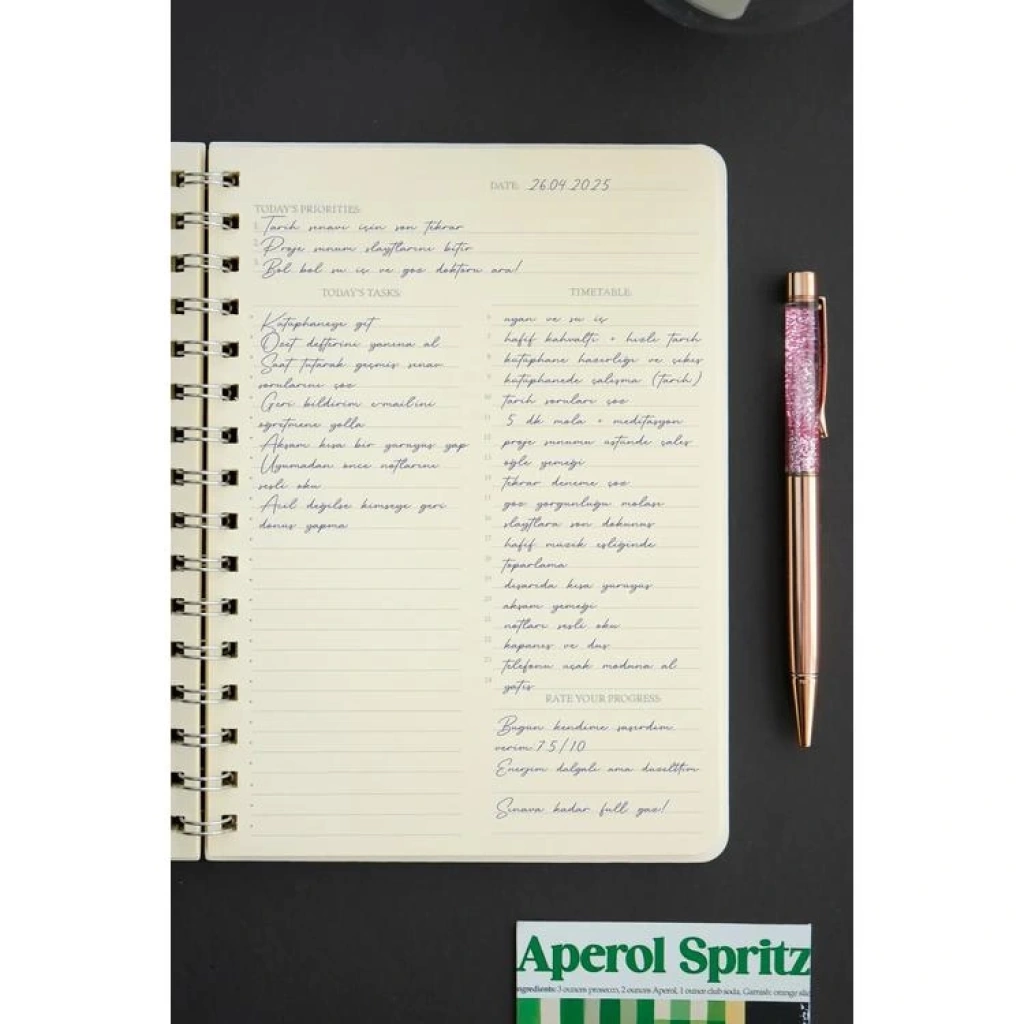 DATE: 26.04.2025
TODAY'S PRIORITIES:
1. Tarih sınavı için son tekrar
2. Proje sunum slaytlarını bitir
3. Bol bol su iç ve göz doktoru ara!
TODAY'S TASKS:
Kütüphaneye git
Özet defterini yanına al
Saat tutarak geçmiş sınav
sorularını çöz
Geri bildirim e-mail'ini
öğretmene yolla
Akşam kısa bir yürüyüş yap
Uyumadan önce notlarını
sesli oku
Acil değilse kimseye geri
dönüş yapma
TIMETABLE:
uyan ve su iç
hafif kahvaltı + hızlı tarih
kütüphane hazırlığı ve çıkış
kütüphanede çalışma (tarih)
tarih soruları çöz
5 dk mola + meditasyon
proje sunumu üstünde çalış
öğle yemeği
tekrar deneme çöz
göz yorgunluğu molası
slaytlara son dokunuş
hafif müzik eşliğinde
toparlama
dışarıda kısa yürüyüş
akşam yemeği
notları sesli oku
kapanış ve duş
telefonu uçak moduna al
yatış
RATE YOUR PROGRESS:
Bugün kendime şaşırdım,
verim: 7.5/10
Enerjim dalgalı ama düzelttim
Sınava kadar full gaz!
Aperol Spritz
ngredients: 3 ounces prosecco, 2 ounces Aperol, 1 ounce club soda, Garnish: orange slic